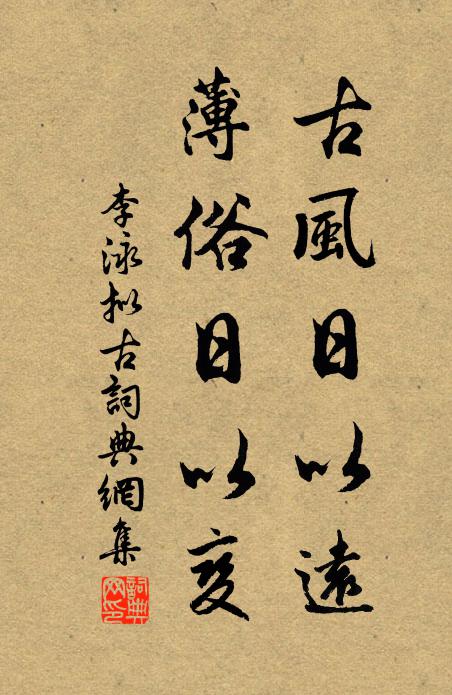 古風日以遠
薄俗日以变
李泳拟古詞典網集
詞典网印